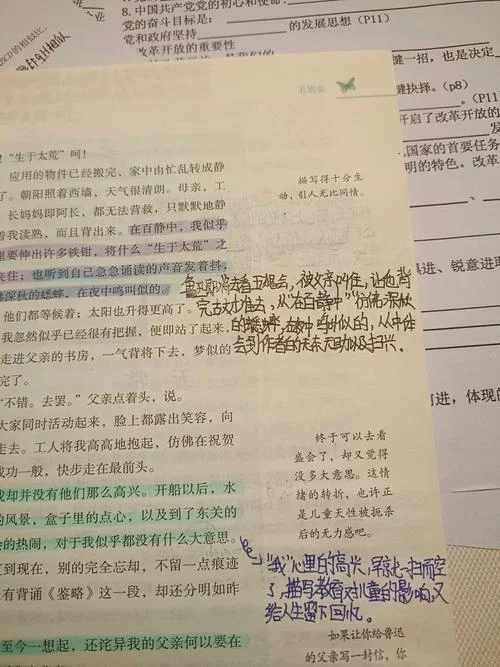 8. 中国共产党党的初心和使命:
党的奋斗目标是:
的发展思想 (P11)
党和政府坚持
改革开放的重要性
键一招,也是决定
键抉择。(p8)
(P11
开启了改革开放的
发
国家的首要任务
明的特色。改革
进、锐意进取
进,体现的
“生于太荒”呵!
应用的物件已经搬完、家中由忙乱转成静
了。朝阳照着西墙,天气很清朗。母亲,工
长妈妈即阿长,都无法营救,只默默地静
着我读熟,而且背出来。在百静中,我似乎
里要伸出许多铁钳,将什么“生于太荒”之
夹住;也听到自己急急诵读的声音发着抖,
佛深秋的蟋蟀,在夜中鸣叫似的。
他们都等候着;太阳也升得更高了。
我忽然似乎已经很有把握,便即站了起来,
走进父亲的书房,一气背将下去,梦似的
完了。
“不错。去罢。”父亲点着头,说。
大家同时活动起来,脸上都露出笑容,向
走去。工人将我高高地抱起,仿佛在祝贺
成功一般,快步走在最前头。
我却并没有他们那么高兴。开船以后,水
的风景,盒子里的点心,以及到了东关的
会的热闹,对于我似乎都没有什么大意思。
直到现在,别的完全忘却,不留一点痕迹
有背诵《鉴略》这一段,却还分明如昨
至今一想起,还诧异我的父亲何以要在
描写得十分生
动,引人无比同情。
被父亲叫住,让他背
完古文才准去,从“在百静中”“仿佛深秋
的蟋蟀,在夜中鸣叫似的,从中体
会到作者的无奈无助以及扫兴。
终于可以去看
盛会了,却又觉得
没多大意思。这情
绪的转折,也许正
是儿童天性被扼杀
后的无力感吧。
“我”心里的高兴,早就一扫而空
了,描写教育对儿童的影响,又
给人生留下回忆。
如果让你给鲁迅
的父亲写一封信,你